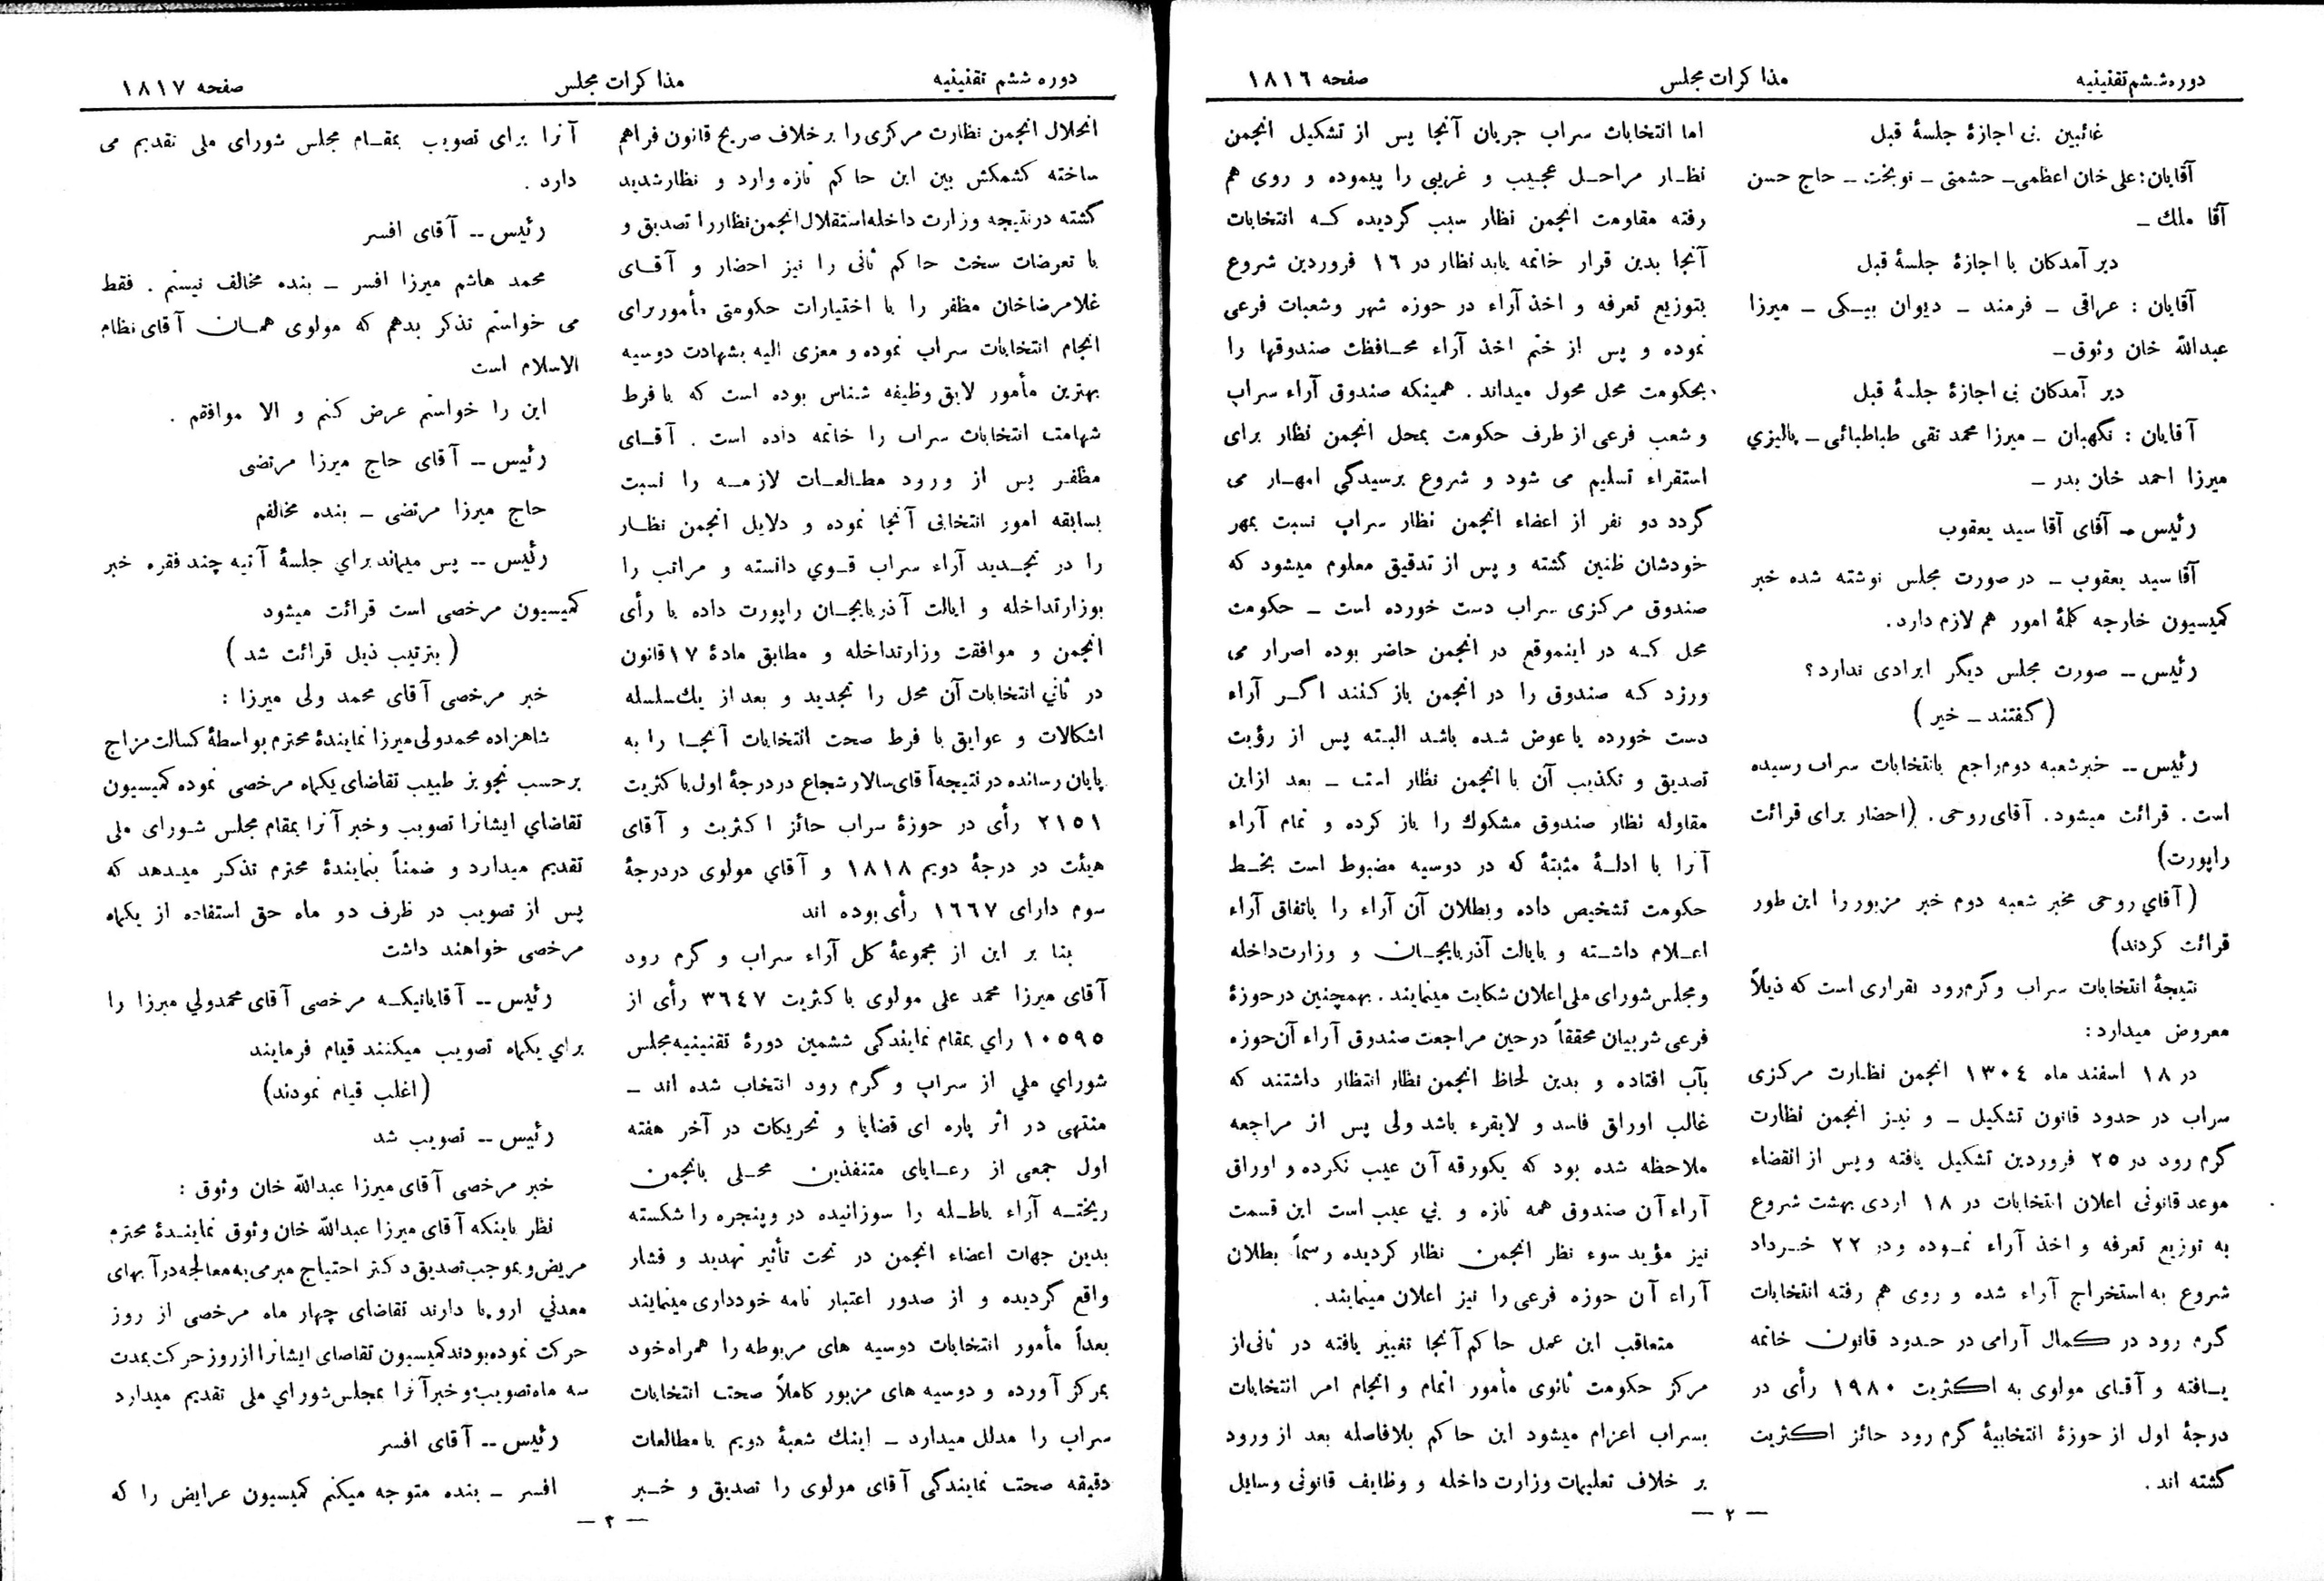 دوره ششم تقنینیه
مذاکرات مجلس
صفحه ۱۸۱۶
غائبین بی اجازهٔ جلسهٔ قبل
آقایان: علی خان اعظمی ـ حشمتی ـ نوبخت ـ حاج حسن
آقا ملك ـ
دیر آمدکان با اجازهٔ جلسهٔ قبل
آقایان : عراقی ـ فرمند ـ دیوان بیـکی ـ میرزا
عبدالله خان وثوق ـ
دیر آمدکان بی اجازهٔ جلسهٔ قبل
آقایان : نگهبان ـ میرزا محمد تقی طباطبائی ـ پالیزي
میرزا احمد خان بدر ـ
رئیس ـ آقای آقا سید یعقوب
آقا سید یعقوب ـ در صورت مجلس نوشته شده خبر
کمیسیون خارجه کلمهٔ امور هم لازم دارد.
رئیس ــ صورت مجلس دیگر ایرادی ندارد ؟
(گفتند ـ خیر)
رئیس ــ خبر شعبه دوم راجع بانتخابات سراب رسیده
است . قرائت میشود . آقای روحی . (احضار برای قرائت
راپورت)
(آقاي روحی مخبر شعبه دوم خبر مزبور را این طور
قرائت کردند)
نتیجهٔ انتخابات سراب و گرم‌رود بقراری است که ذیلاً
معروض میدارد :
در ۱۸ اسفند ماه ۱۳۰٤ انجمن نظارت مرکزی
سراب در حدود قانون تشکیل ـ و نیـز انجمن نظارت
گرم رود در ۲۵ فروردین تشکیل یافته و پس از انقضاء
موعد قانونی اعلان انتخابات در ۱۸ اردی بهشت شروع
به توزیع تعرفه و اخذ آراء نمـوده و در ۲۲ خـرداد
شروع به استخراج آراء شده و روی هم رفته انتخابات
گرم رود در کمال آرامی در حـدود قانون خاتمه
یـافته و آقـای مولوی به اکثریت ۱۹۸۰ رأی در
درجهٔ اول از حوزهٔ انتخابیهٔ گرم رود حائز اکثریت
گشته اند .
اما انتخابات سراب جریان آنجا پس از تشکیل انجمن
نظـار مراحـل عجـیب و غریبی را پیموده و روی هم
رفته مقاومت انجمن نظار سبب گردیده کـه انتخابات
آنجا بدین قرار خاتمه یابد نظار در ۱٦ فروردین شروع
بتوزیع تعرفه و اخذ آراء در حوزه شهر و شعبات فرعی
نموده و پس از ختم اخذ آراء محـافظت صندوقها را
بحکومت محل محول میداند . همینکه صندوق آراء سراب
و شعب فرعی از طرف حکومت بمحل انجمن نظار برای
استقراء تسلیم می شود و شروع برسیدگي امهـار می
گردد دو نفر از اعضاء انجمن نظار سراب نسبت بمهر
خودشان ظنین گشته و پس از تدقیق معلوم میشود که
صندوق مرکزی سراب دست خورده است ـ حکومت
محل کـه در اینموقع در انجمن حاضر بوده اصرار می
ورزد کـه صندوق را در انجمن باز کـنند اگـر آراء
دست خورده یا عوض شـده باشد البـته پس از رؤیت
تصدیق و تکذیب آن با انجمن نظار است ـ بعد ازاین
مقاوله نظار صندوق مشکوك را باز کرده و تمام آراء
آنرا با ادلـهٔ مثبتهٔ که در دوسیه مضبوط است بخـط
حکومت تشخیص داده و بطلان آن آراء را باتفاق آراء
اعـلام داشـته و بایالت آذربایجـان و وزارت‌داخله
و مجلس شورای ملی اعلان شکایت مینمایند . بهمچنین در حوزهٔ
فرعی شربیان محققاً در حین مراجعت صندوق آراء آن حوزه
بآب افتاده و بدین لحاظ انجمن نظار انتظار داشتند که
غالب اوراق فاسد و لایقرء باشد ولی پس از مراجعه
ملاحظه شده بود که یکورقه آن عیب نکرده و اوراق
آراء آن صندوق همه تازه و بي عیب است این قسمت
نیز مؤید سوء نظر انجمن نظار کردیده رسماً بطلان
آراء آن حوزه فرعی را نیز اعلان مینمایند .
متعاقب این عمل حاکم آنجا تغییر یافته در ثانی از
مرکز حکومت ثانوی مأمور اتمام و انجام امر انتخابات
بسراب اعزام میشود این حاکم بلافاصله بعد از ورود
بر خلاف تعلیمات وزارت داخله و وظایف قانونی وسایل
— ۲ —
دوره ششم تقنینیه
مذاکرات مجلس
صفحه ۱۸۱۷
انحلال انجمن نظارت مرکزی را بر خلاف صریح قانون فراهم
ساخته کشمکش بین این حاکم تازه وارد و نظار شدید
گشته در نتیجه وزارت داخله استقلال انجمن نظار را تصدیق و
با تعرضات سخت حاکم ثانی را نیز احضار و آقـای
غلامرضاخان مظفر را با اختیارات حکومتی مأمور برای
انجام انتخابات سراب نموده و معزی الیه بشهادت دوسیه
بهترین مأمور لایق وظیفه شناس بوده است که با فرط
شهامت انتخابات سراب را خاتمه داده است . آقـای
مظفر پس از ورود مطـالعـات لازمـه را نسبت
بسابقه امور انتخابی آنجا نموده و دلایل انجمن نظـار
را در تجـدید آراء سراب قـوي دانسته و مراتب را
بوزارتداخله و ایالت آذربایجـان راپورت داده با رأی
انجمن و موافقت وزارتداخله و مطابق مادهٔ ۱۷ قانون
در ثاني انتخابات آن محل را تجدید و بعد از یك سلسله
اشکالات و عوایق با فرط صحت انتخابات آنجـا را به
پایان رسانده در نتیجه آقای سالار شجاع در درجهٔ اول با کثریت
۲۱۵۱ رأی در حوزهٔ سراب حائز اکثریت و آقای
هیئت در درجهٔ دویم ۱۸۱۸ و آقاي مولوی در درجهٔ
سوم دارای ۱٦٦۷ رأی بوده اند
بنا بر این از مجموعهٔ کل آراء سراب و گرم رود
آقای میرزا محمد علی مولوی با کثریت ۳٦٤۷ رأی از
۱۰۵۹۵ راي بمقام نمایندگی ششمین دورهٔ تقنینیه مجلس
شوراي ملي از سراب و گرم رود انتخاب شده اند ـ
منتهی در اثر پاره ای قضایا و تحریکات در آخر هفته
اول جمعی از رعـایای متنفذین محـلی بانجمن
ریختـه آراء باطـله را سوزانیده در و پنجره را شکسته
بدین جهات اعضاء انجمن در تحت تأثیر تهدید و فشار
واقع گردیده و از صدور اعتبار نامه خودداری مینمایند
بعداً مأمور انتخابات دوسیه های مربوطه را همراه خود
بمرکز آورده و دوسیه های مزبور کاملاً صحت انتخابات
سراب را مدلل میدارد ـ اینك شعبهٔ دویم با مطالعات
دقیقه صحت نمایندگی آقای مولوی را تصدیق و خـبر
آنرا برای تصویب بمقـام مجلس شورای ملی تقدیم می
دارد .
رئیس ــ آقای افسر
محمد هاشم میرزا افسر ـ بنده مخالف نیستم . فقط
می خواستم تذکر بدهم که مولوی همـان آقای نظام
الاسلام است
این را خواستم عرض کنم و الا موافقم .
رئیس ــ آقای حاج میرزا مرتضی
حاج میرزا مرتضی ـ بنده مخالفم
رئیس ــ پس میماند براي جلسهٔ آتیه چند فقره خبر
کمیسیون مرخصی است قرائت میشود
(بترتیب ذیل قرائت شد)
خبر مرخصی آقای محمد ولی میرزا :
شاهزاده محمدولی میرزا نمایندهٔ محترم بواسطهٔ کسالت مزاج
برحسب تجویز طبیب تقاضای یکماه مرخصی نموده کمیسیون
تقاضاي ایشانرا تصویب و خبر آنرا بمقام مجلس شـورای ملی
تقدیم میدارد و ضمناً بنمایندهٔ محترم تذکر میـدهد که
پس از تصویب در ظرف دو ماه حق استفاده از یکماه
مرخصی خواهند داشت
رئیس ــ آقایانیکـه مرخصی آقای محمدولي میرزا را
براي یکماه تصویب میکنند قیام فرمایند
(اغلب قیام نمودند)
رئیس ــ تصویب شد
خبر مرخصی آقای میرزا عبدالله خان وثوق :
نظر باینکه آقای میرزا عبدالله خان وثوق نماینـدهٔ محترم
مریض و بموجب تصدیق دکتر احتیاج مبرمی به معالجه در آبهای
معدني اروپا دارند تقاضای چهار ماه مرخصی از روز
حرکت نموده بودند کمیسیون تقاضای ایشانرا از روز حرکت بمدت
سه ماه تصویب و خبر آنرا بمجلس شوراي ملی تقدیم میدارد
رئیس ــ آقای افسر
افسر ـ بنده متوجه میکنم کمیسیون عرایض را که
— ۳ —